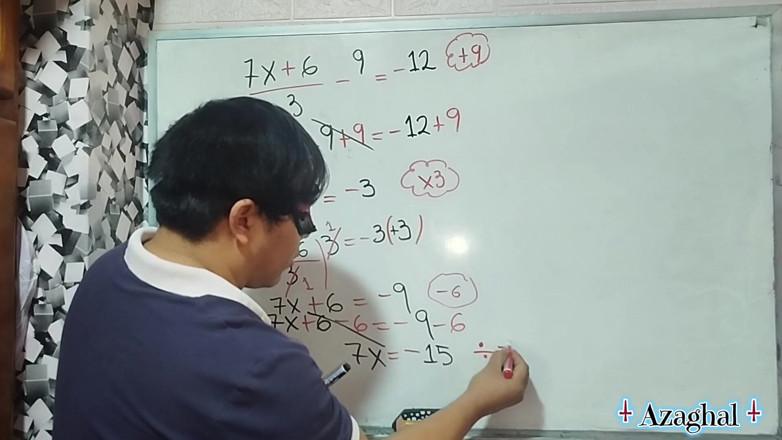 7x + 6 / 3 - 9 = -12 +9
9 + 9 = -12 + 9
= -3 x3
6 / 3 1 ) 3 1 = -3(+3)
7x + 6 = -9 -6
7x + 6 - 6 = -9 - 6
7x = -15 ÷
Azaghal